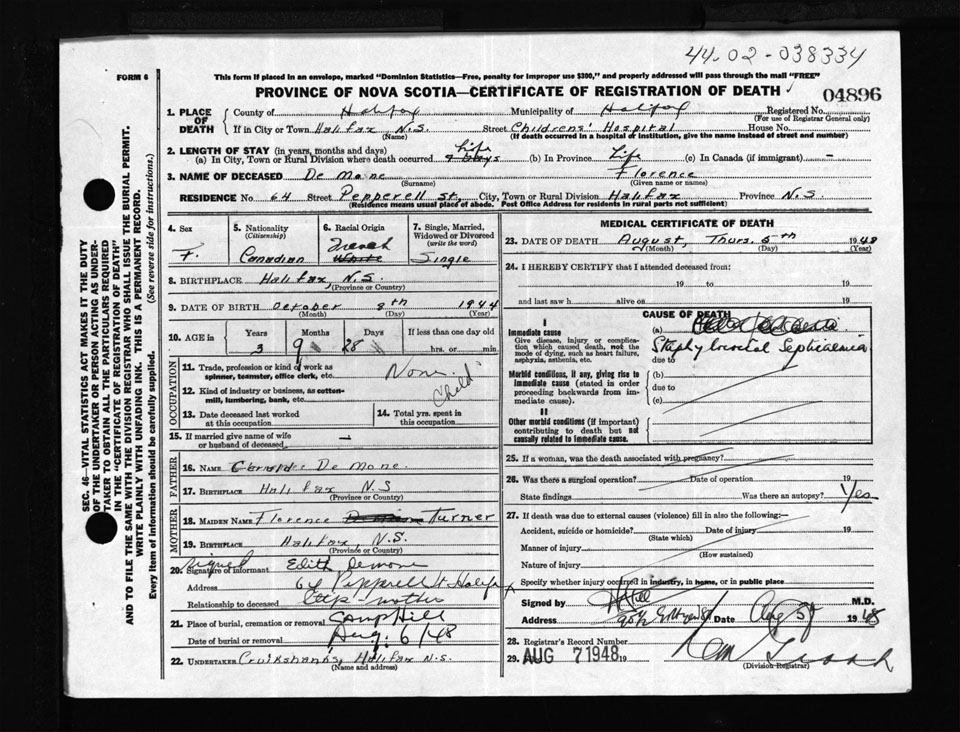 44-02-038334
FORM 6
This form if placed in an envelope, marked "Dominion Statistics—Free, penalty for improper use $300," and properly addressed will pass through the mail "FREE"
PROVINCE OF NOVA SCOTIA—CERTIFICATE OF REGISTRATION OF DEATH
04896
1. PLACE OF DEATH
County of Halifax Municipality of Halifax Registered No.
(For use of Registrar General only)
If in City or Town Halifax N.S. Street Childrens' Hospital House No.
(Name) (If death occurred in a hospital or institution, give the name instead of street and number)
2. LENGTH OF STAY (in years, months and days)
(a) In City, Town or Rural Division where death occurred 9 days Life (b) In Province Life (c) In Canada (if immigrant) —
3. NAME OF DECEASED De Mone Florence
(Surname) (Given name or names)
RESIDENCE No 64 Street Pepperell St, City, Town or Rural Division Halifax Province N.S.
(Residence means usual place of abode. Post Office Address for residents in rural parts not sufficient)
4. Sex
F.
5. Nationality
(Citizenship)
Canadian
6. Racial Origin
French
White
7. Single, Married, Widowed or Divorced
(write the word)
Single
8. BIRTHPLACE Halifax, N.S.
(Province or Country)
9. DATE OF BIRTH October 8th 1944
(Month) (Day) (Year)
10. AGE in
Years Months Days If less than one day old
3 9 28 hrs. or min.
OCCUPATION
11. Trade, profession or kind of work as spinner, teamster, office clerk, etc. None.
12. Kind of industry or business, as cotton-mill, lumbering, bank, etc. Child
13. Date deceased last worked at this occupation
14. Total yrs. spent in this occupation
15. If married give name of wife or husband of deceased —
FATHER
16. NAME De Mone.
17. BIRTHPLACE Halifax N.S
(Province or Country)
MOTHER
18. MAIDEN NAME Florence Turner
19. BIRTHPLACE Halifax, N.S.
(Province or Country)
signed
20. Signature of informant Edith Demone
Address 64 Pepperell St Halifax
Relationship to deceased Step-mother
21. Place of burial, cremation or removal Camp Hill
Date of burial or removal Aug. 6/48
22. UNDERTAKER Cruikshanks, Halifax N.S.
(Name and address)
MEDICAL CERTIFICATE OF DEATH
23. DATE OF DEATH August, Thurs. 5th 1948
(Month) (Day) (Year)
24. I HEREBY CERTIFY that I attended deceased from:
19 to 19
and last saw h alive on 19
CAUSE OF DEATH
I
Immediate cause
Give disease, injury or complication which caused death, not the mode of dying, such as heart failure, asphyxia, asthenia, etc.
(a)
Staphylococcal Septicaemia
due to
Morbid conditions, if any, giving rise to immediate cause (stated in order proceeding backwards from immediate cause).
(b)
due to
(c)
II
Other morbid conditions (if important) contributing to death but not causally related to immediate cause.
25. If a woman, was the death associated with pregnancy?
26. Was there a surgical operation? Date of operation 19
State findings Was there an autopsy? Yes
27. If death was due to external causes (violence) fill in also the following:—
Accident, suicide or homicide? Date of injury 19
(State which)
Manner of injury
(How sustained)
Nature of injury
Specify whether injury occurred in industry, in home, or in public place
Signed by M.D.
Address Date Aug 5 1948
28. Registrar's Record Number
29. AUG 7 1948 19
(Division Registrar)
SEC. 46—VITAL STATISTICS ACT MAKES IT THE DUTY
OF THE UNDERTAKER OR PERSON ACTING AS UNDERTAKER TO OBTAIN ALL THE PARTICULARS REQUIRED
IN THE "CERTIFICATE OF REGISTRATION OF DEATH"
AND TO FILE THE SAME WITH THE DIVISION REGISTRAR WHO SHALL ISSUE THE BURIAL PERMIT.
WRITE PLAINLY WITH UNFADING INK. THIS IS A PERMANENT RECORD.
Every item of information should be carefully supplied. (See reverse side for instructions.)